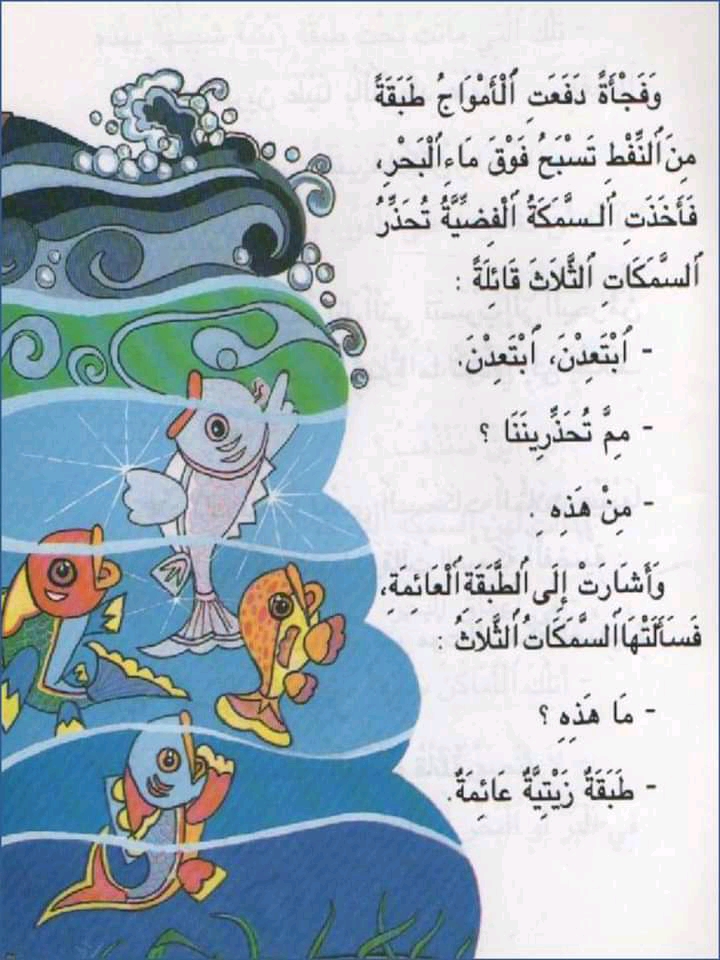 وَفَجْأَةً دَفَعَتِ ٱلْأَمْوَاجُ طَبَقَةً
مِنَ ٱلنِّفْطِ تَسْبَحُ فَوْقَ مَاءِ ٱلْبَحْرِ،
فَأَخَذَتِ ٱلسَّمَكَةُ ٱلْفِضِّيَّةُ تُحَذِّرُ
ٱلسَّمَكَاتِ ٱلثَّلَاثَ قَائِلَةً :
- ٱبْتَعِدْنَ، ٱبْتَعِدْنَ.
- مِمَّ تُحَذِّرِينَنَا ؟
- مِنْ هَذِهِ
وَأَشَارَتْ إِلَى ٱلطَّبَقَةِ ٱلْعَائِمَةِ،
فَسَأَلَتْهَا ٱلسَّمَكَاتُ ٱلثَّلَاثُ :
- مَا هَذِهِ ؟
- طَبَقَةٌ زَيْتِيَّةٌ عَائِمَةٌ.